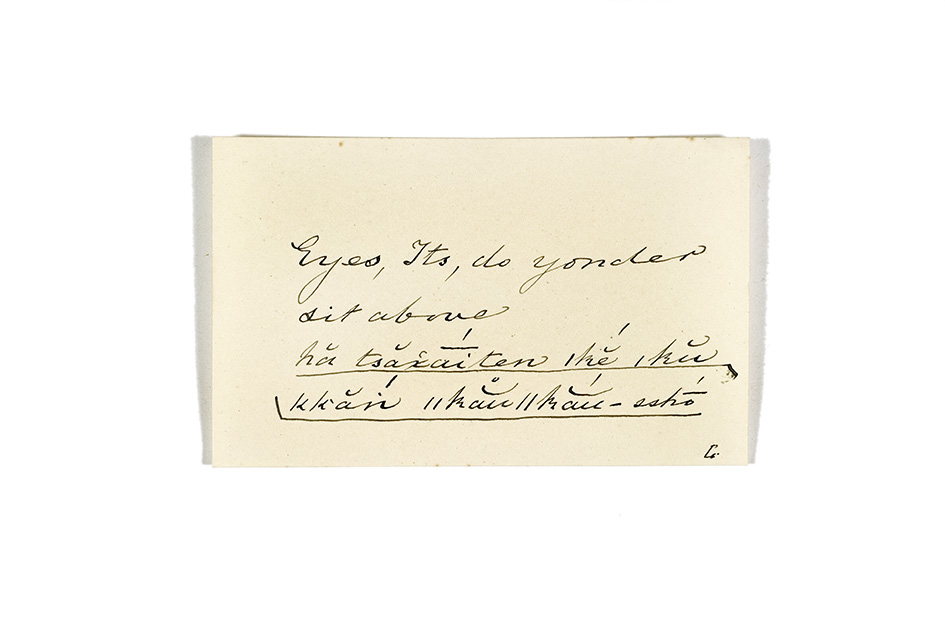 Eyes, Its, do yonder
sit above
hă tsăxáĭten |kĕ́ |kŭ
kkăṅ́ ||kău||kắu-sshō̍
L.